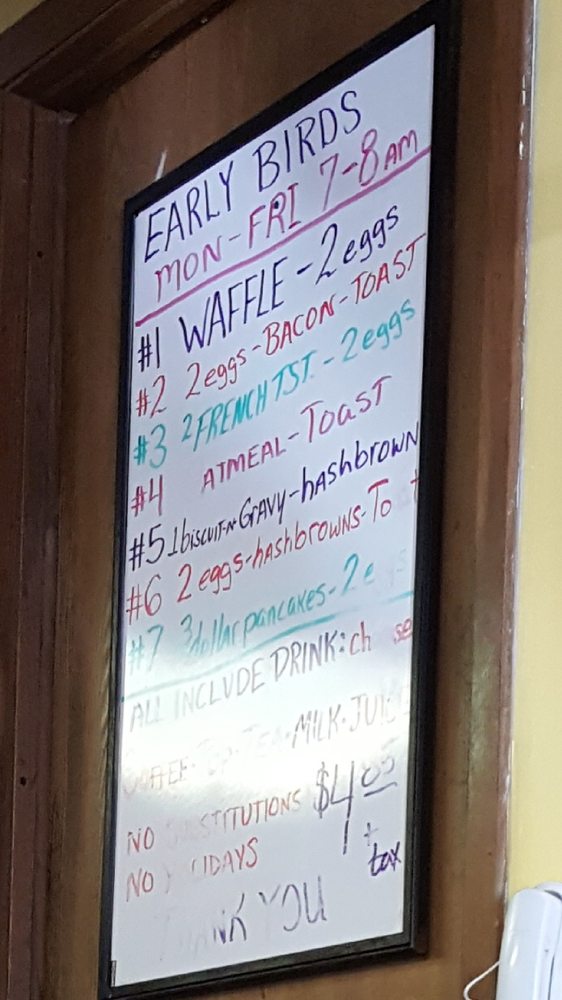 EARLY BIRDS
MON-FRI 7-8AM
#1 WAFFLE-2eggs
#2 2eggs-BACON-TOAST
#3 2FRENCH TST.-2eggs
#4 ATMEAL-Toast
#5 1biscuit-n-GRAVY-hashbrown
#6 2eggs-hashbrowns-To t
#7 3dollar pancakes-2e
ALL INCLUDE DRINK: ch se
COFFEE-Pop-Tea-MILK-JUICE
NO STITUTIONS $4.85
NO IDAYS + tax
ANK YOU